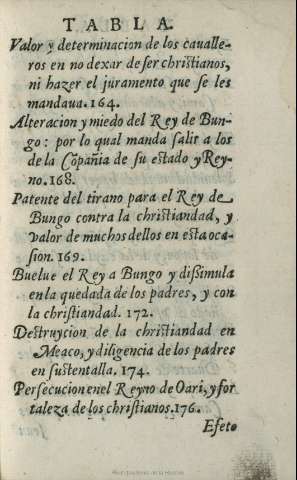 TABLA.
Valor y determinacion de los caualle-
ros en no dexar de ser christianos,
ni hazer el juramento que se les
mandaua. 164.
Alteracion y miedo del Rey de Bun-
go: por lo qual manda salir a los
de la Cõpañia de su estado y Rey-
no. 168.
Patente del tirano para el Rey de
Bungo contra la christiandad, y
valor de muchos dellos en esta oca-
sion. 169.
Buelue el Rey a Bungo y dissimula
en la quedada de los padres, y con
la christiandad. 172.
Destruycion de la christiandad en
Meaco, y diligencia de los padres
en sustentalla. 174.
Persecucion en el Reyno de Oari, y for
taleza de los christianos. 176.
Efeto